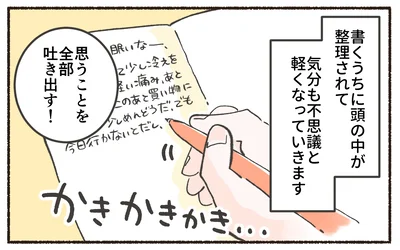 書くうちに頭の中が
整理されて
気分も不思議と
軽くなっていきます
思うことを
全部
吐き出す!
眠いなー、
て少し冷えを
軽い痛み、あと
このあと買い物に
少しめんどうだ。でも
今日行かないとだし、
かきかきかき...